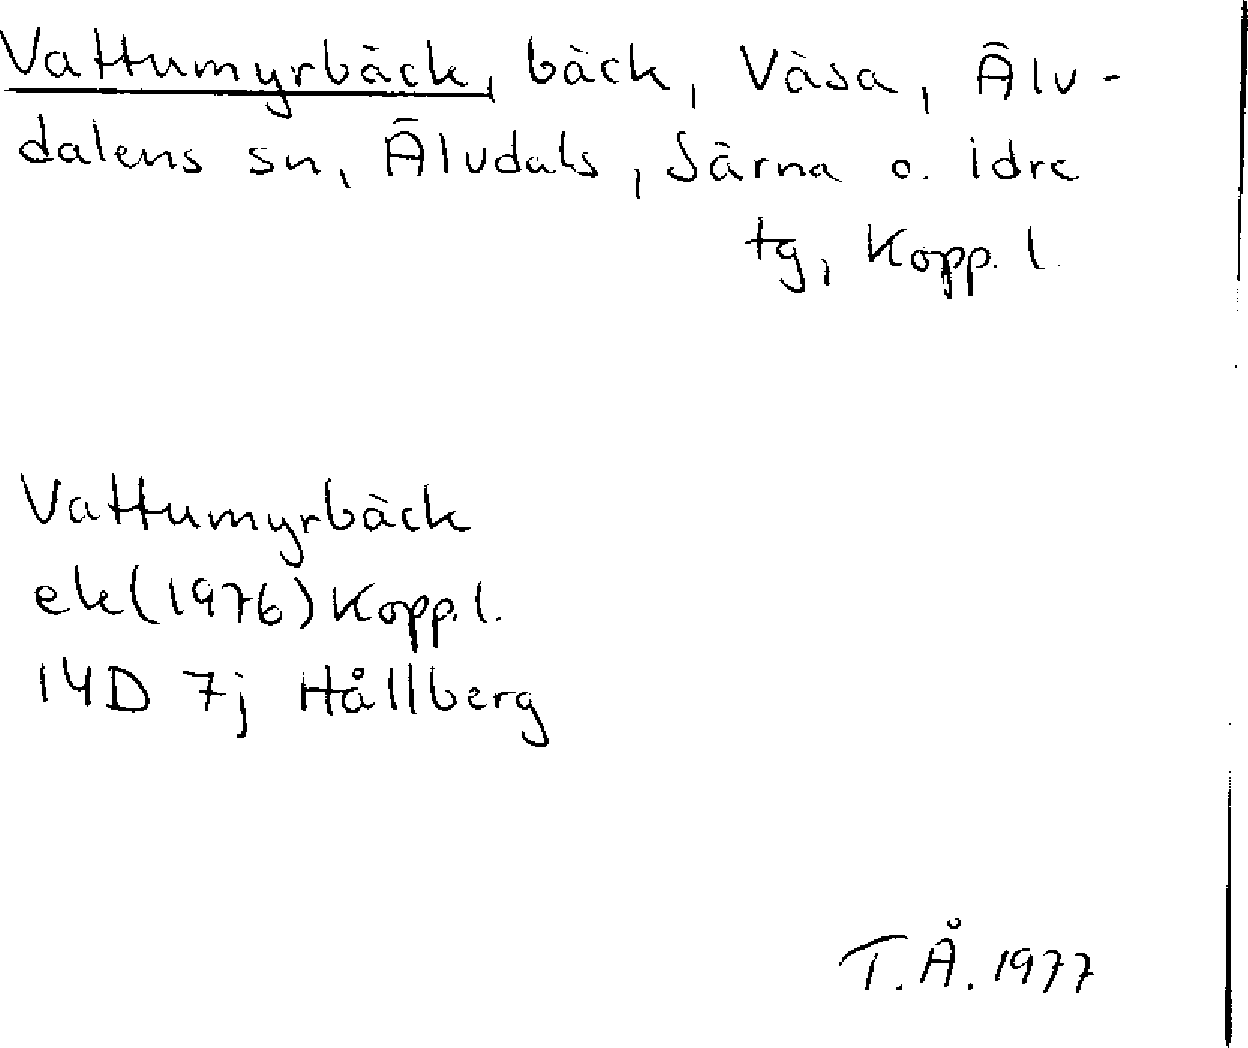 Vattumyrbäck, bäck, Våsa, Älv-
dalens sn, Älvdals, Särna o. idre
tg, Kopp. l.
Vattumyrbäck
ek(1976) Kopp. l.
14D 7j Hållberg
T.Å. 1977